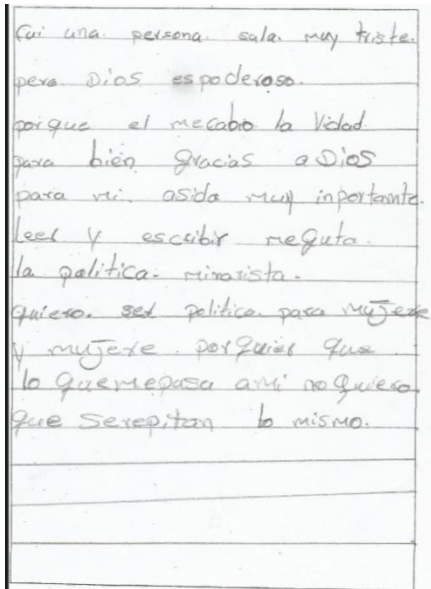 Fui una. persona. sola. muy triste.
pero Dios es poderoso.
porque el mecabio la Vidad
para bien gracias a Dios
para mi. asido muy inportante.
leer y escribir meguta.
la politica.
quiero. ser politica. para mujere
y mujere. porquier que
lo quemepasa ami no quiero
que Serepitan lo mismo.